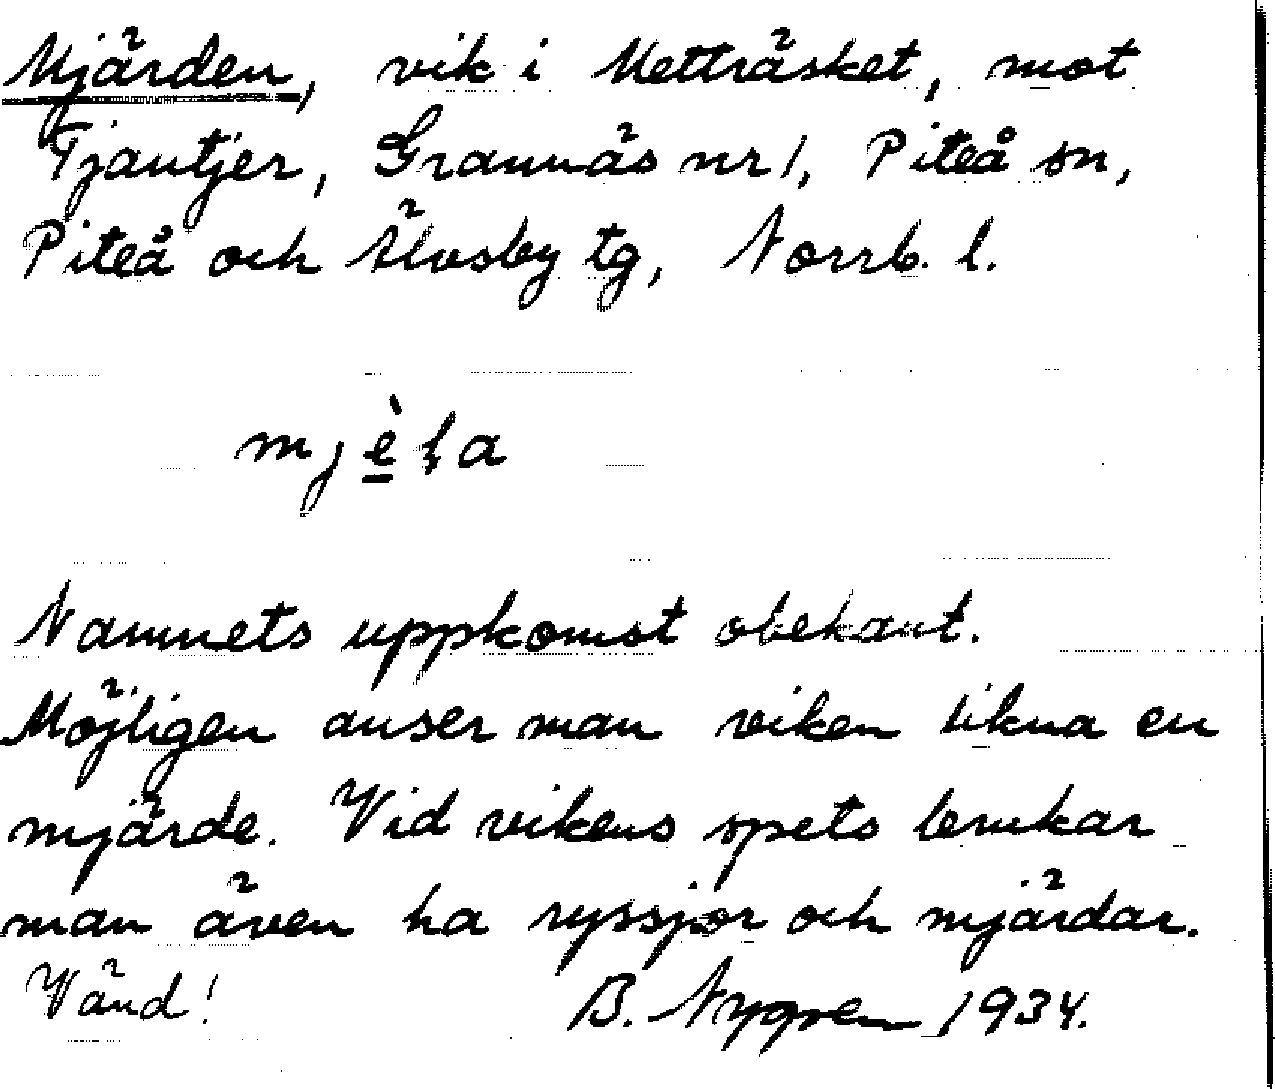 Mjärden, vik i Metträsket, mot
Tjautjer, Grannäs nr 1, Piteå sn,
Piteå och Älvsby tg, Norrb. l.
mjè̱ḷa
Namnets uppkomst obekant.
Möjligen anser man viken likna en
mjärde. Vid vikens spets brukar
man även ha ryssjor och mjärdar.
Vänd! B. Nygren 1934.